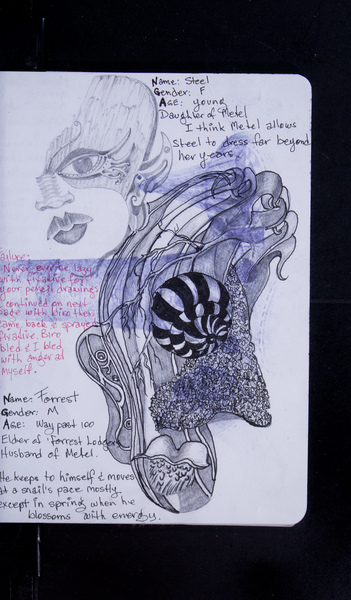 Name: Steel
Gender: F
Age: young
Daughter of Metel
I think Metel allows
Steel to dress far beyond
her years.
ailure:
Never ever be lazy
with fixative for
your pencil drawings
I continued on next
page with biro then
came back & sprayed
fixative. Biro
bled & I bled
with anger at
myself.
Name: Forrest
Gender: M
Age: Way past 100
Elder of Forrest Lodgers
Husband of Metel.
He keeps to himself & moves
at a snail's pace mostly
except in spring when he
blossoms with energy.